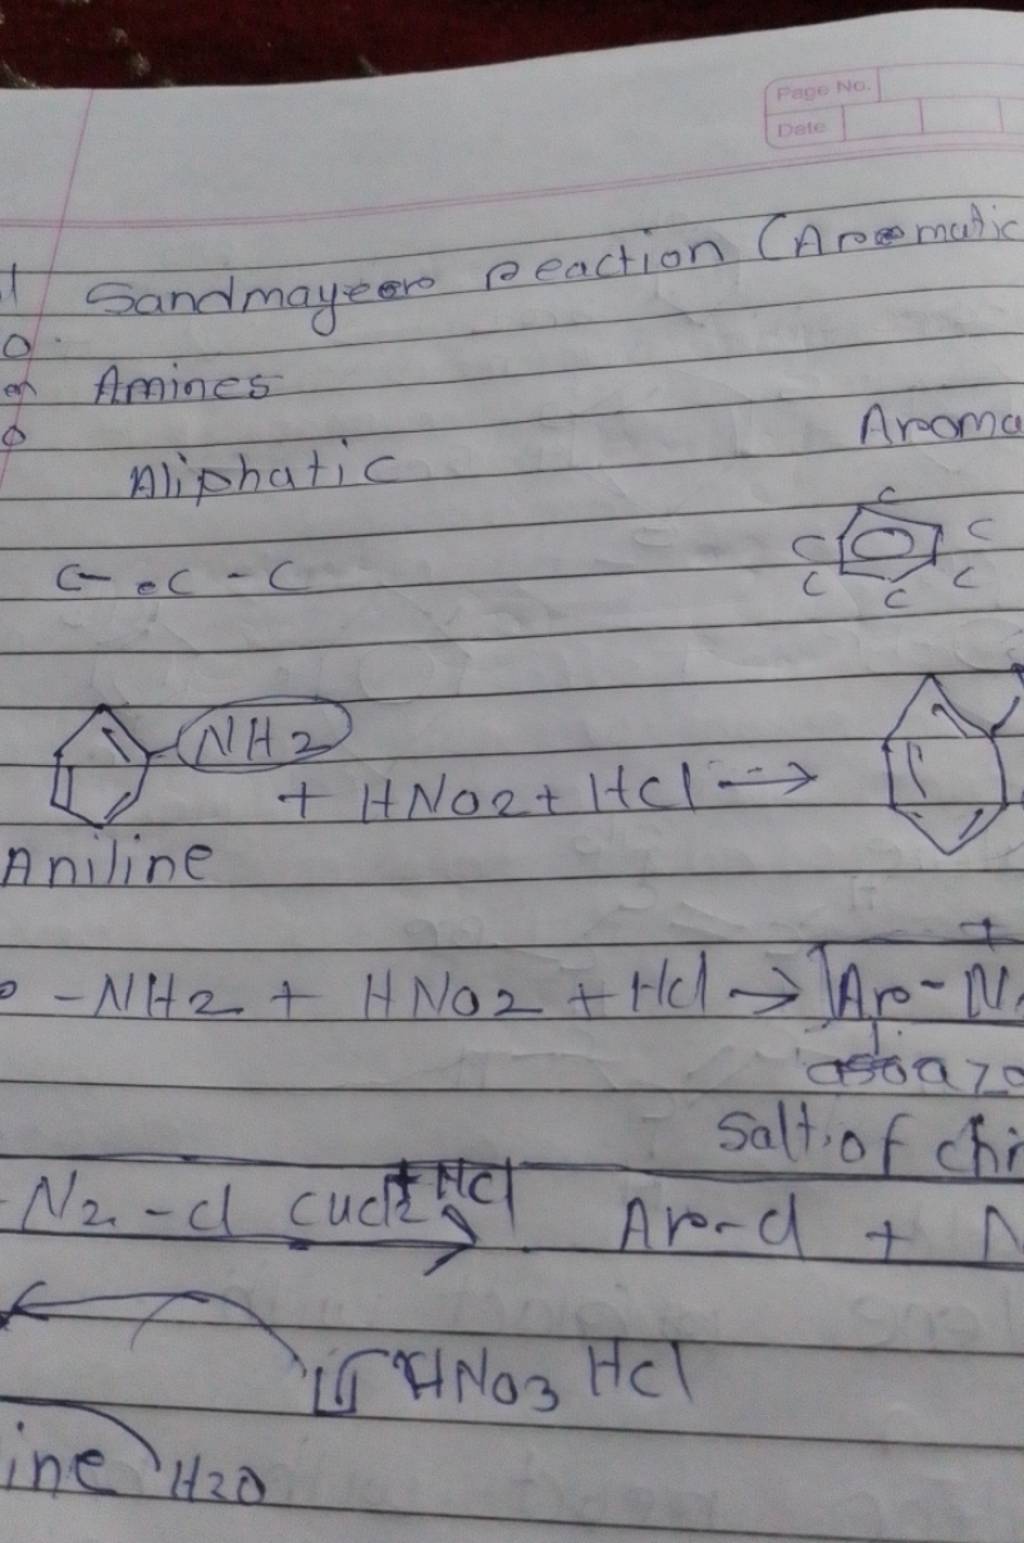 Page No.
Date
Sandmayeer Reaction (Aromatic
Amines
Aroma
Aliphatic
C
C C
C - C - C
C C
C
NH2
+ HNO2 + HCl →
Aniline
-NH2 + HNO2 + HCl → Ar-N
Salt of
-N2-Cl CuCl2 + HCl Ar-Cl + N
HNO3 HCl
ine H2O